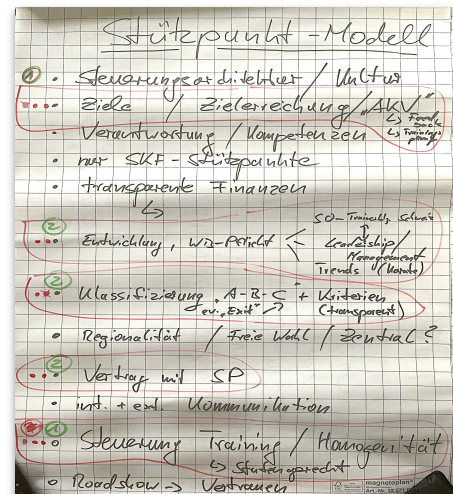 Stützpunkt-Modell
① • Steuerungsarchitektur / Kultur
• Ziele / Zielerreichung / "AKV"
↳ Feedback
↳ Trainingsplang
• Verantwortung / Kompetenzen
• nur SKF-Stützpunkte
• transparente Finanzen
↳
② • Entwicklung, WB-Pflicht < SO-Trainerbildg. Schweiz
Leadership /
Management
Trends (Karate)
② • Klassifizierung "A-B-C" + Kriterien
ev. "Exit" (transparent)
• Regionalität / Freie Wahl / Zentral?
② • Vertrag mit SP
• int. + ext. Kommunikation
① • Steuerung Training / Homogenität
↳ Stufengerecht
• Roadshow → Vertrauen
magnetoplan